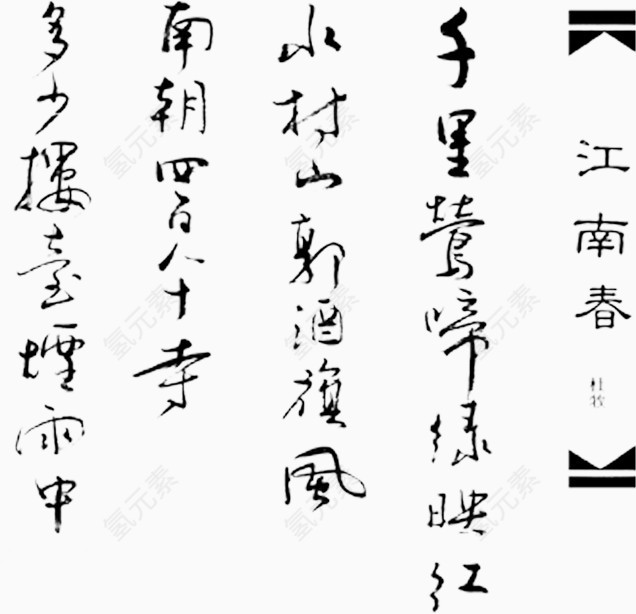 江南春
杜牧
千里鶯啼绿映红
水村山郭酒旗風
南朝四百八十寺
多少樓臺煙雨中
氢元素
氢元素
氢元素
氢元素
氢元素
氢元素
氢元素
氢元素
氢元素